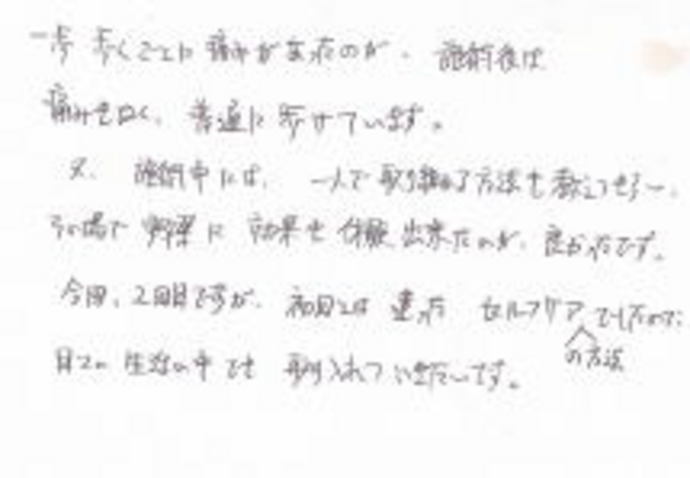 一歩 歩くごとに 痛みがあったのが、施術後は
痛みもなく、普通に歩けています。
又、施術中には、一人で取り組める方法も教えてもらい、
その場で 効果を 体験 出来たのが、良かったです。
今回、2回目ですが、初回とは 違った セルフケアでしたので、
の方法
日々の生活の中でも 取り入れていきたいです。